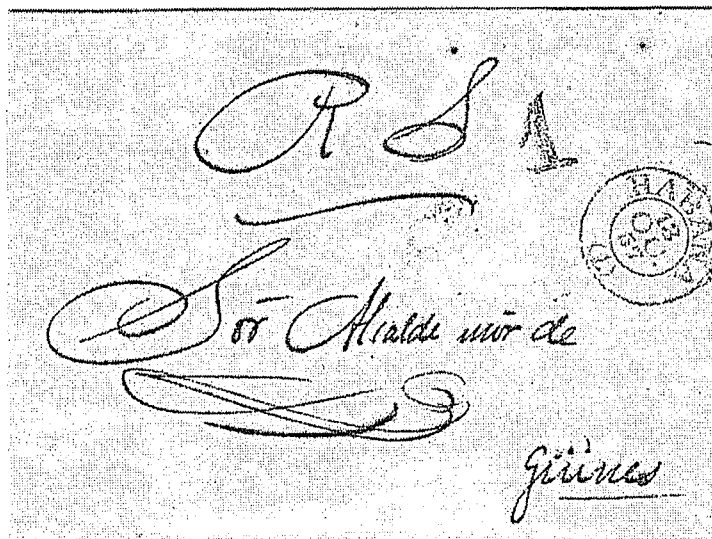 R S 1
HABANA
Sor Alcalde mór de
Güines